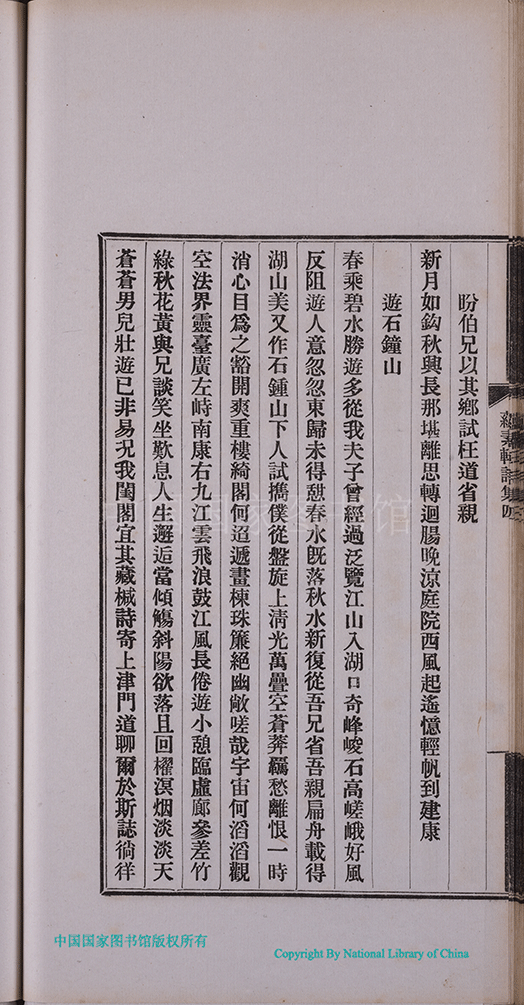 盼伯兄以其鄉試枉道省親
新月如鈎秋興長那堪離思轉迴腸晚涼庭院西風起遙憶輕帆到建康
遊石鐘山
春乘碧水勝遊多從我夫子曾經過泛覽江山入湖口奇峰峻石高嵯峨好風
反阻遊人意忽忽東歸未得憩春水既落秋水新復從吾兄省吾親扁舟載得
湖山美又作石鍾山下人試攜僕從盤旋上淸光萬疊空蒼莽羈愁離恨一時
消心目爲之豁開爽重樓綺閣何迢遞畫棟珠簾絕幽敞嗟哉宇宙何滔滔觀
空法界靈臺廣左峙南康右九江雲飛浪鼓江風長倦遊小憩臨虛廊參差竹
綠秋花黃與兄談笑坐歎息人生邂逅當傾觴斜陽欲落且回櫂溟烟淡淡天
蒼蒼男兒壯遊已非易況我閨閣宜其藏椷詩寄上津門道聊爾於斯誌徜徉
詩集
中国国家图书馆
中国国家图书馆版权所有
Copyright By National Library of China